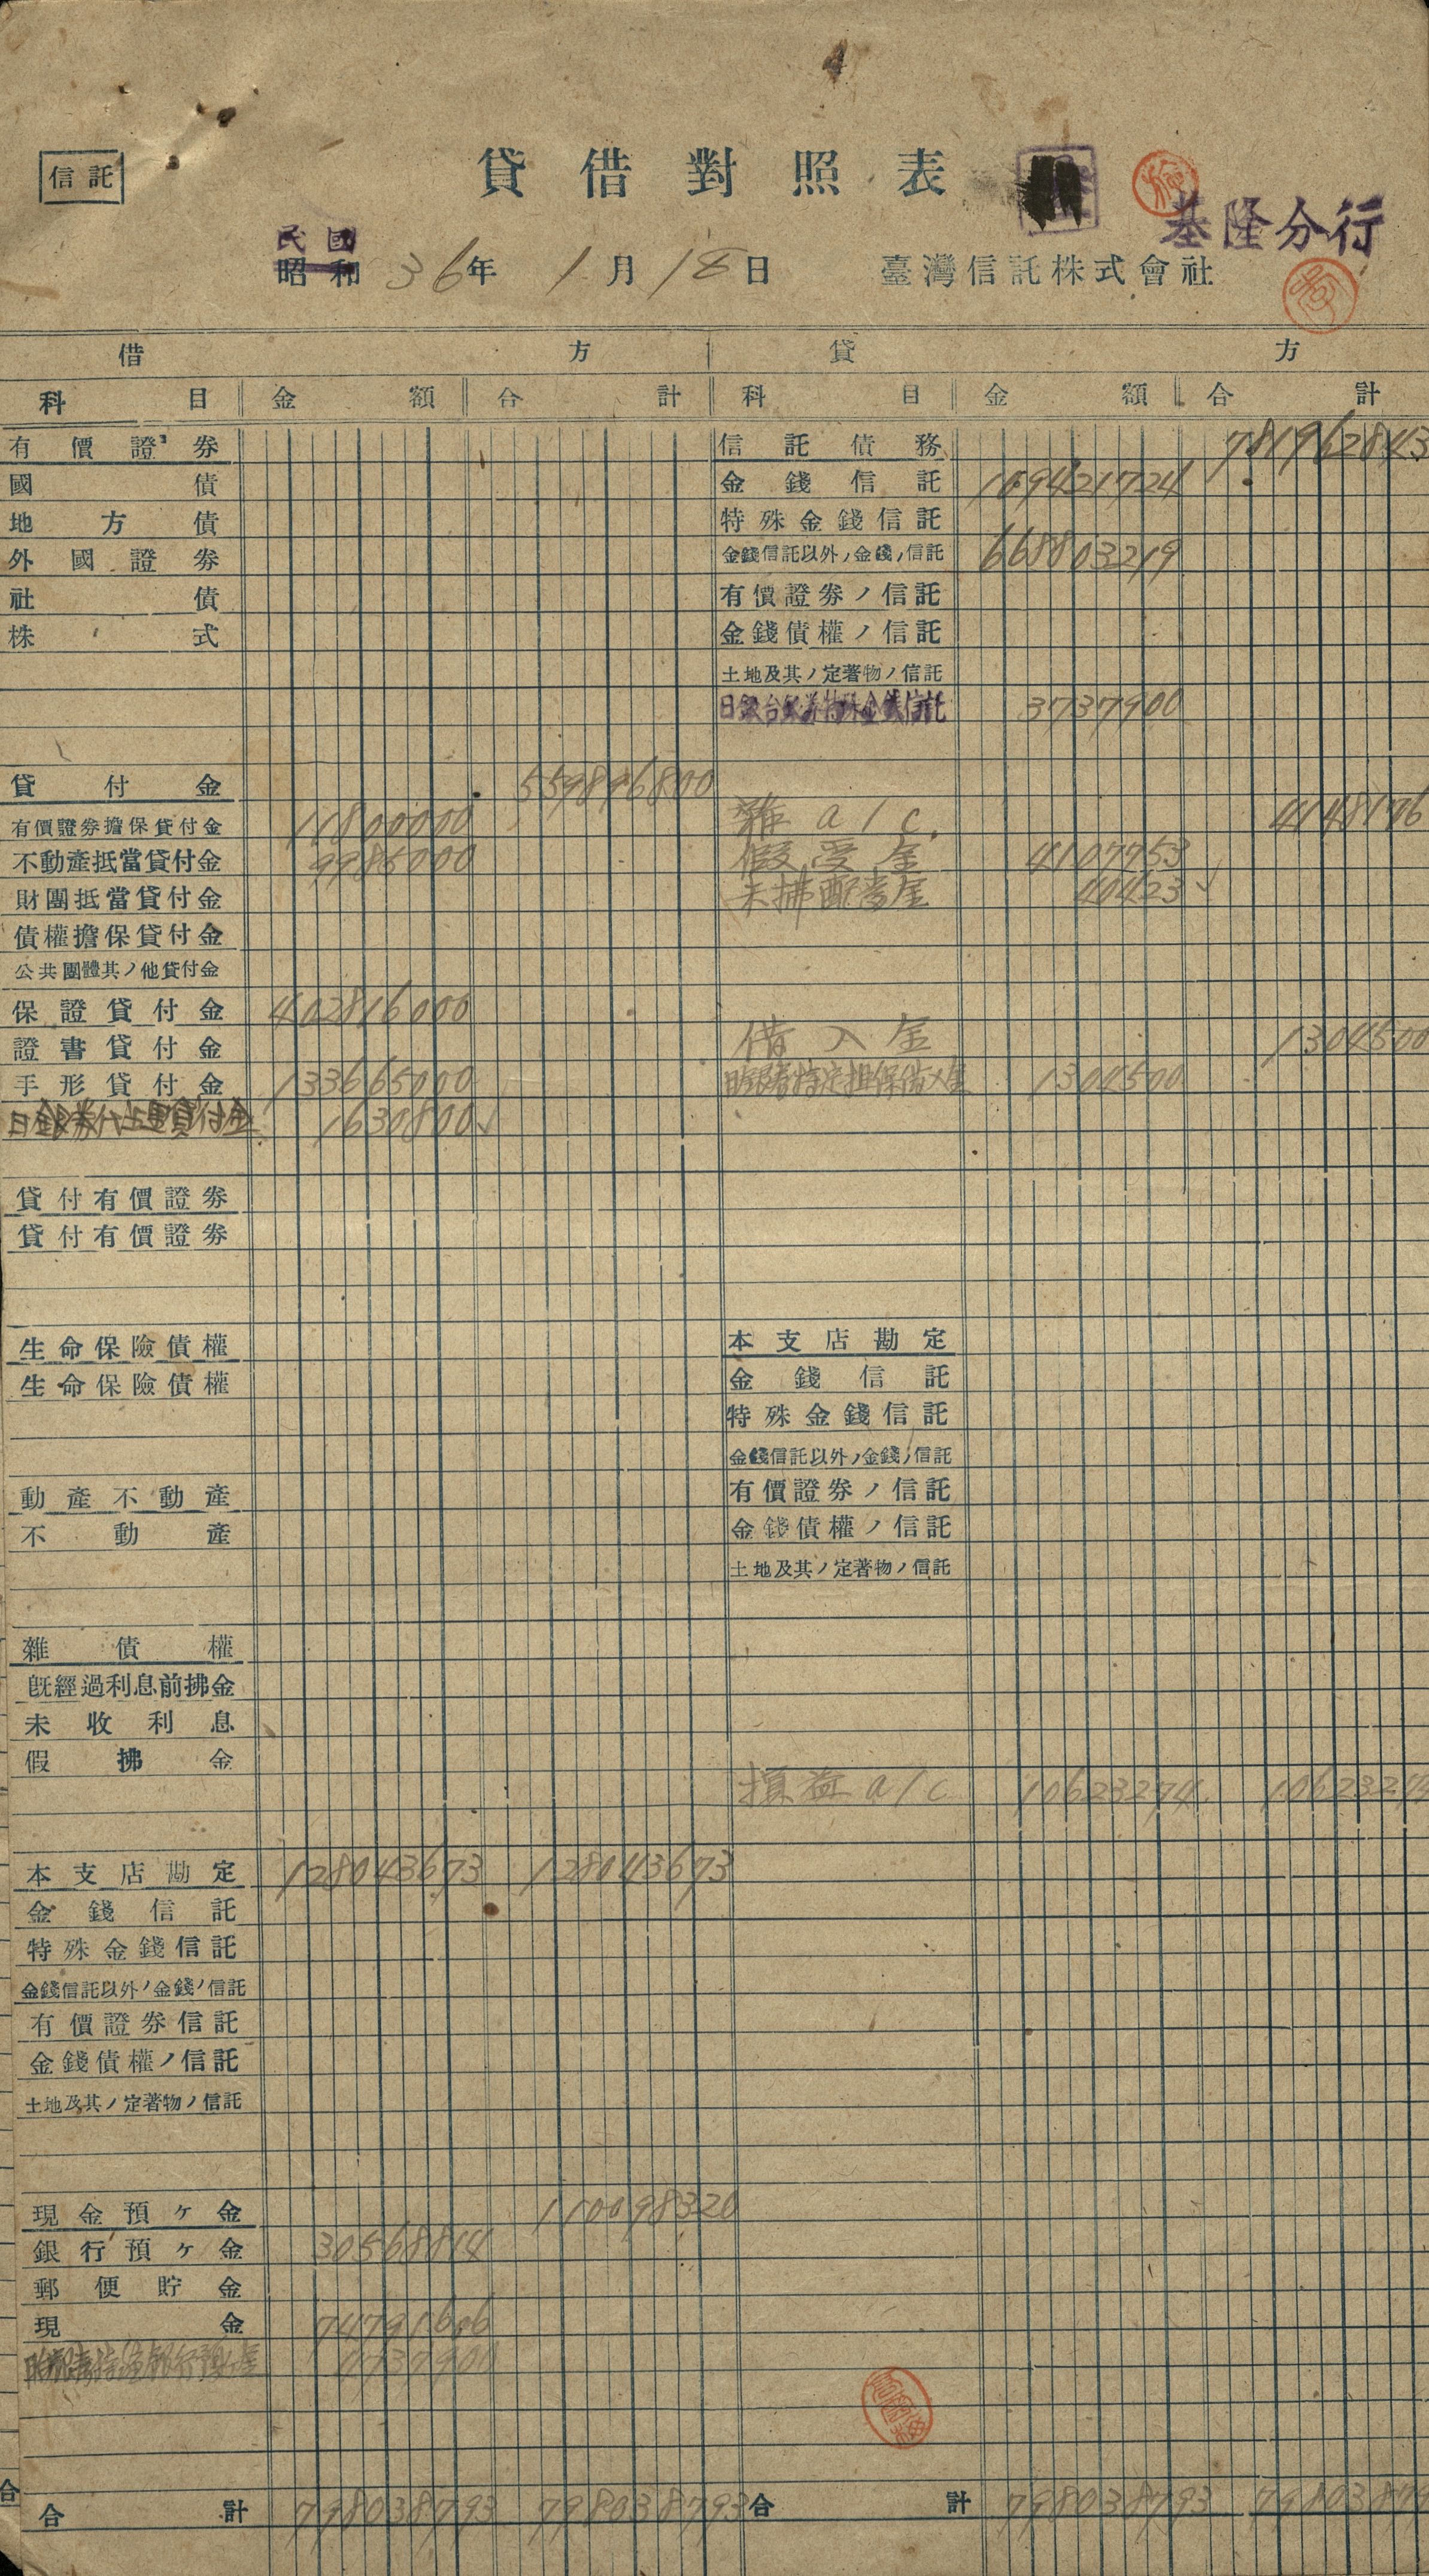 信託
貸借對照表
基隆分行
民國
昭和 36年 1月 18日 臺灣信託株式會社
借方 貸方
科目 金額 合計 科目 金額 合計
有價證券 信託債務 781962843
國債 金錢信託 109421724
地方債 特殊金錢信託
外國證券 金錢信託以外ノ金錢ノ信託 668803219
社債 有價證券ノ信託
株式 金錢債權ノ信託
土地及其ノ定著物ノ信託
日銀台銀券特殊金錢信託 3737900
貸付金 559896800
有價證券擔保貸付金 11800000 雜a/c 4148176
不動產抵當貸付金 9985000 假受金 4107753
財團抵當貸付金 未拂配當金 40423
債權擔保貸付金
公共團體其ノ他貸付金
保證貸付金 402816000
證書貸付金 借入金 1304500
手形貸付金 133665000 特定担保借入金 1304500
日銀券代占運貸付金 1630800
貸付有價證券
貸付有價證券
生命保險債權 本支店勘定
生命保險債權 金錢信託
特殊金錢信託
金錢信託以外ノ金錢ノ信託
動產不動產 有價證券ノ信託
不動產 金錢債權ノ信託
土地及其ノ定著物ノ信託
雜債權
既經過利息前拂金
未收利息
假拂金
損益a/c 10623274 10623274
本支店勘定 128043673 128043673
金錢信託
特殊金錢信託
金錢信託以外ノ金錢ノ信託
有價證券信託
金錢債權ノ信託
土地及其ノ定著物ノ信託
現金預ヶ金 110098320
銀行預ヶ金 30568814
郵便貯金
現金 74791606
4737900
合計 798038793 798038793 合計 798038793 798038793